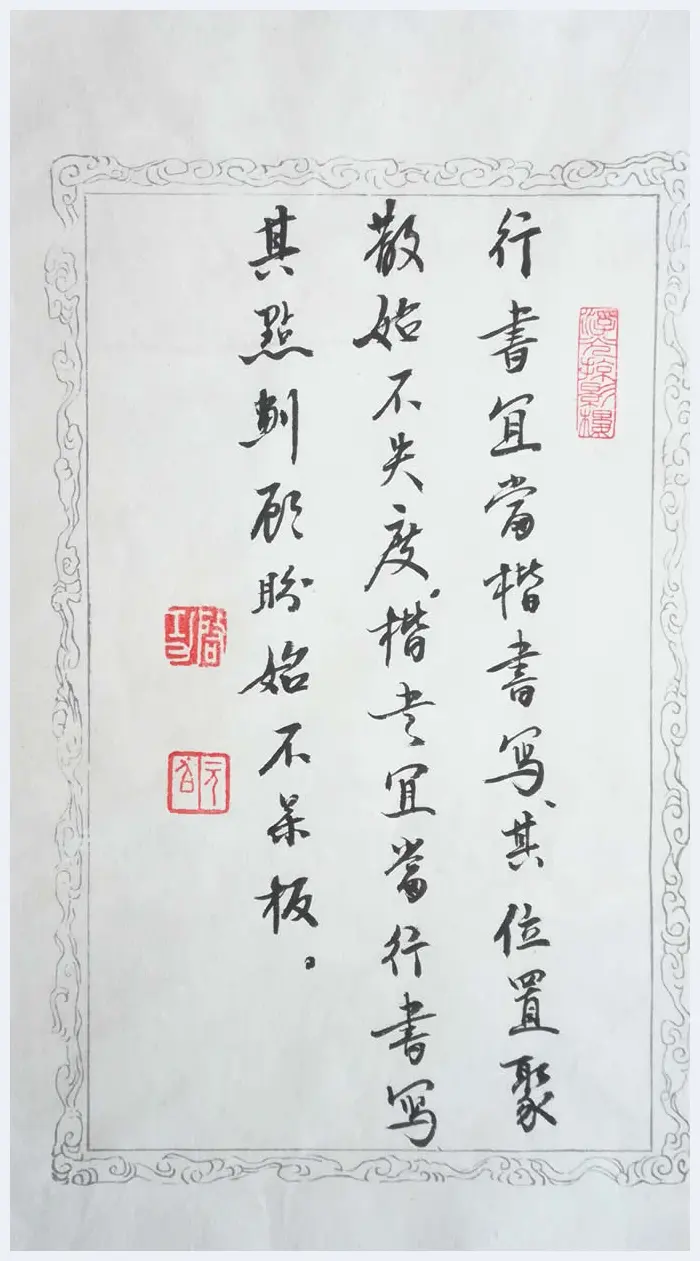 行書宜當楷書写、其位置聚
散始不失度。楷书宜當行書写
其點劃顾盼始不呆板。